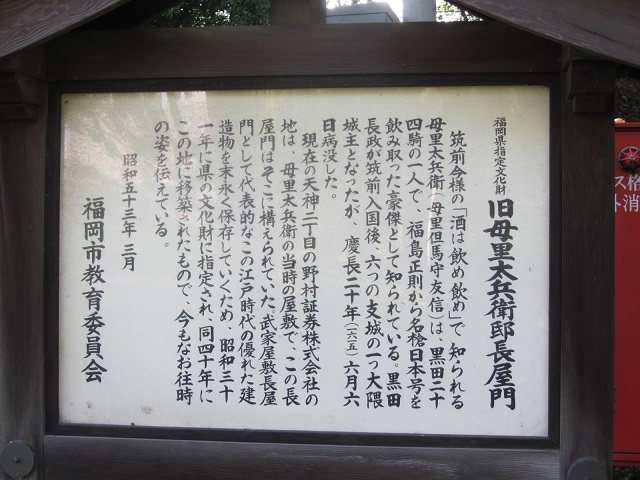 福岡県指定文化財
旧母里太兵衛邸長屋門
筑前今様の「酒は飲め飲め」で知られる
母里太兵衛（母里但馬守友信）は、黒田二十
四騎の一人で、福島正則から名槍日本号を
飲み取った豪傑として知られている。黒田
長政が筑前入国後、六つの支城の一つ大隈
城主となったが、慶長二十年（一六一五）六月六
日病没した。
現在の天神二丁目の野村証券株式会社の
地は、母里太兵衛の当時の屋敷で、この長
屋門はそこに構えられていた。武家屋敷長屋
門として代表的なこの江戸時代の優れた建
造物を末永く保存していくため、昭和三十
一年に県の文化財に指定され、同四十年に
この地に移築されたもので、今もなお往時
の姿を伝えている。
昭和五十三年三月
福岡市教育委員会